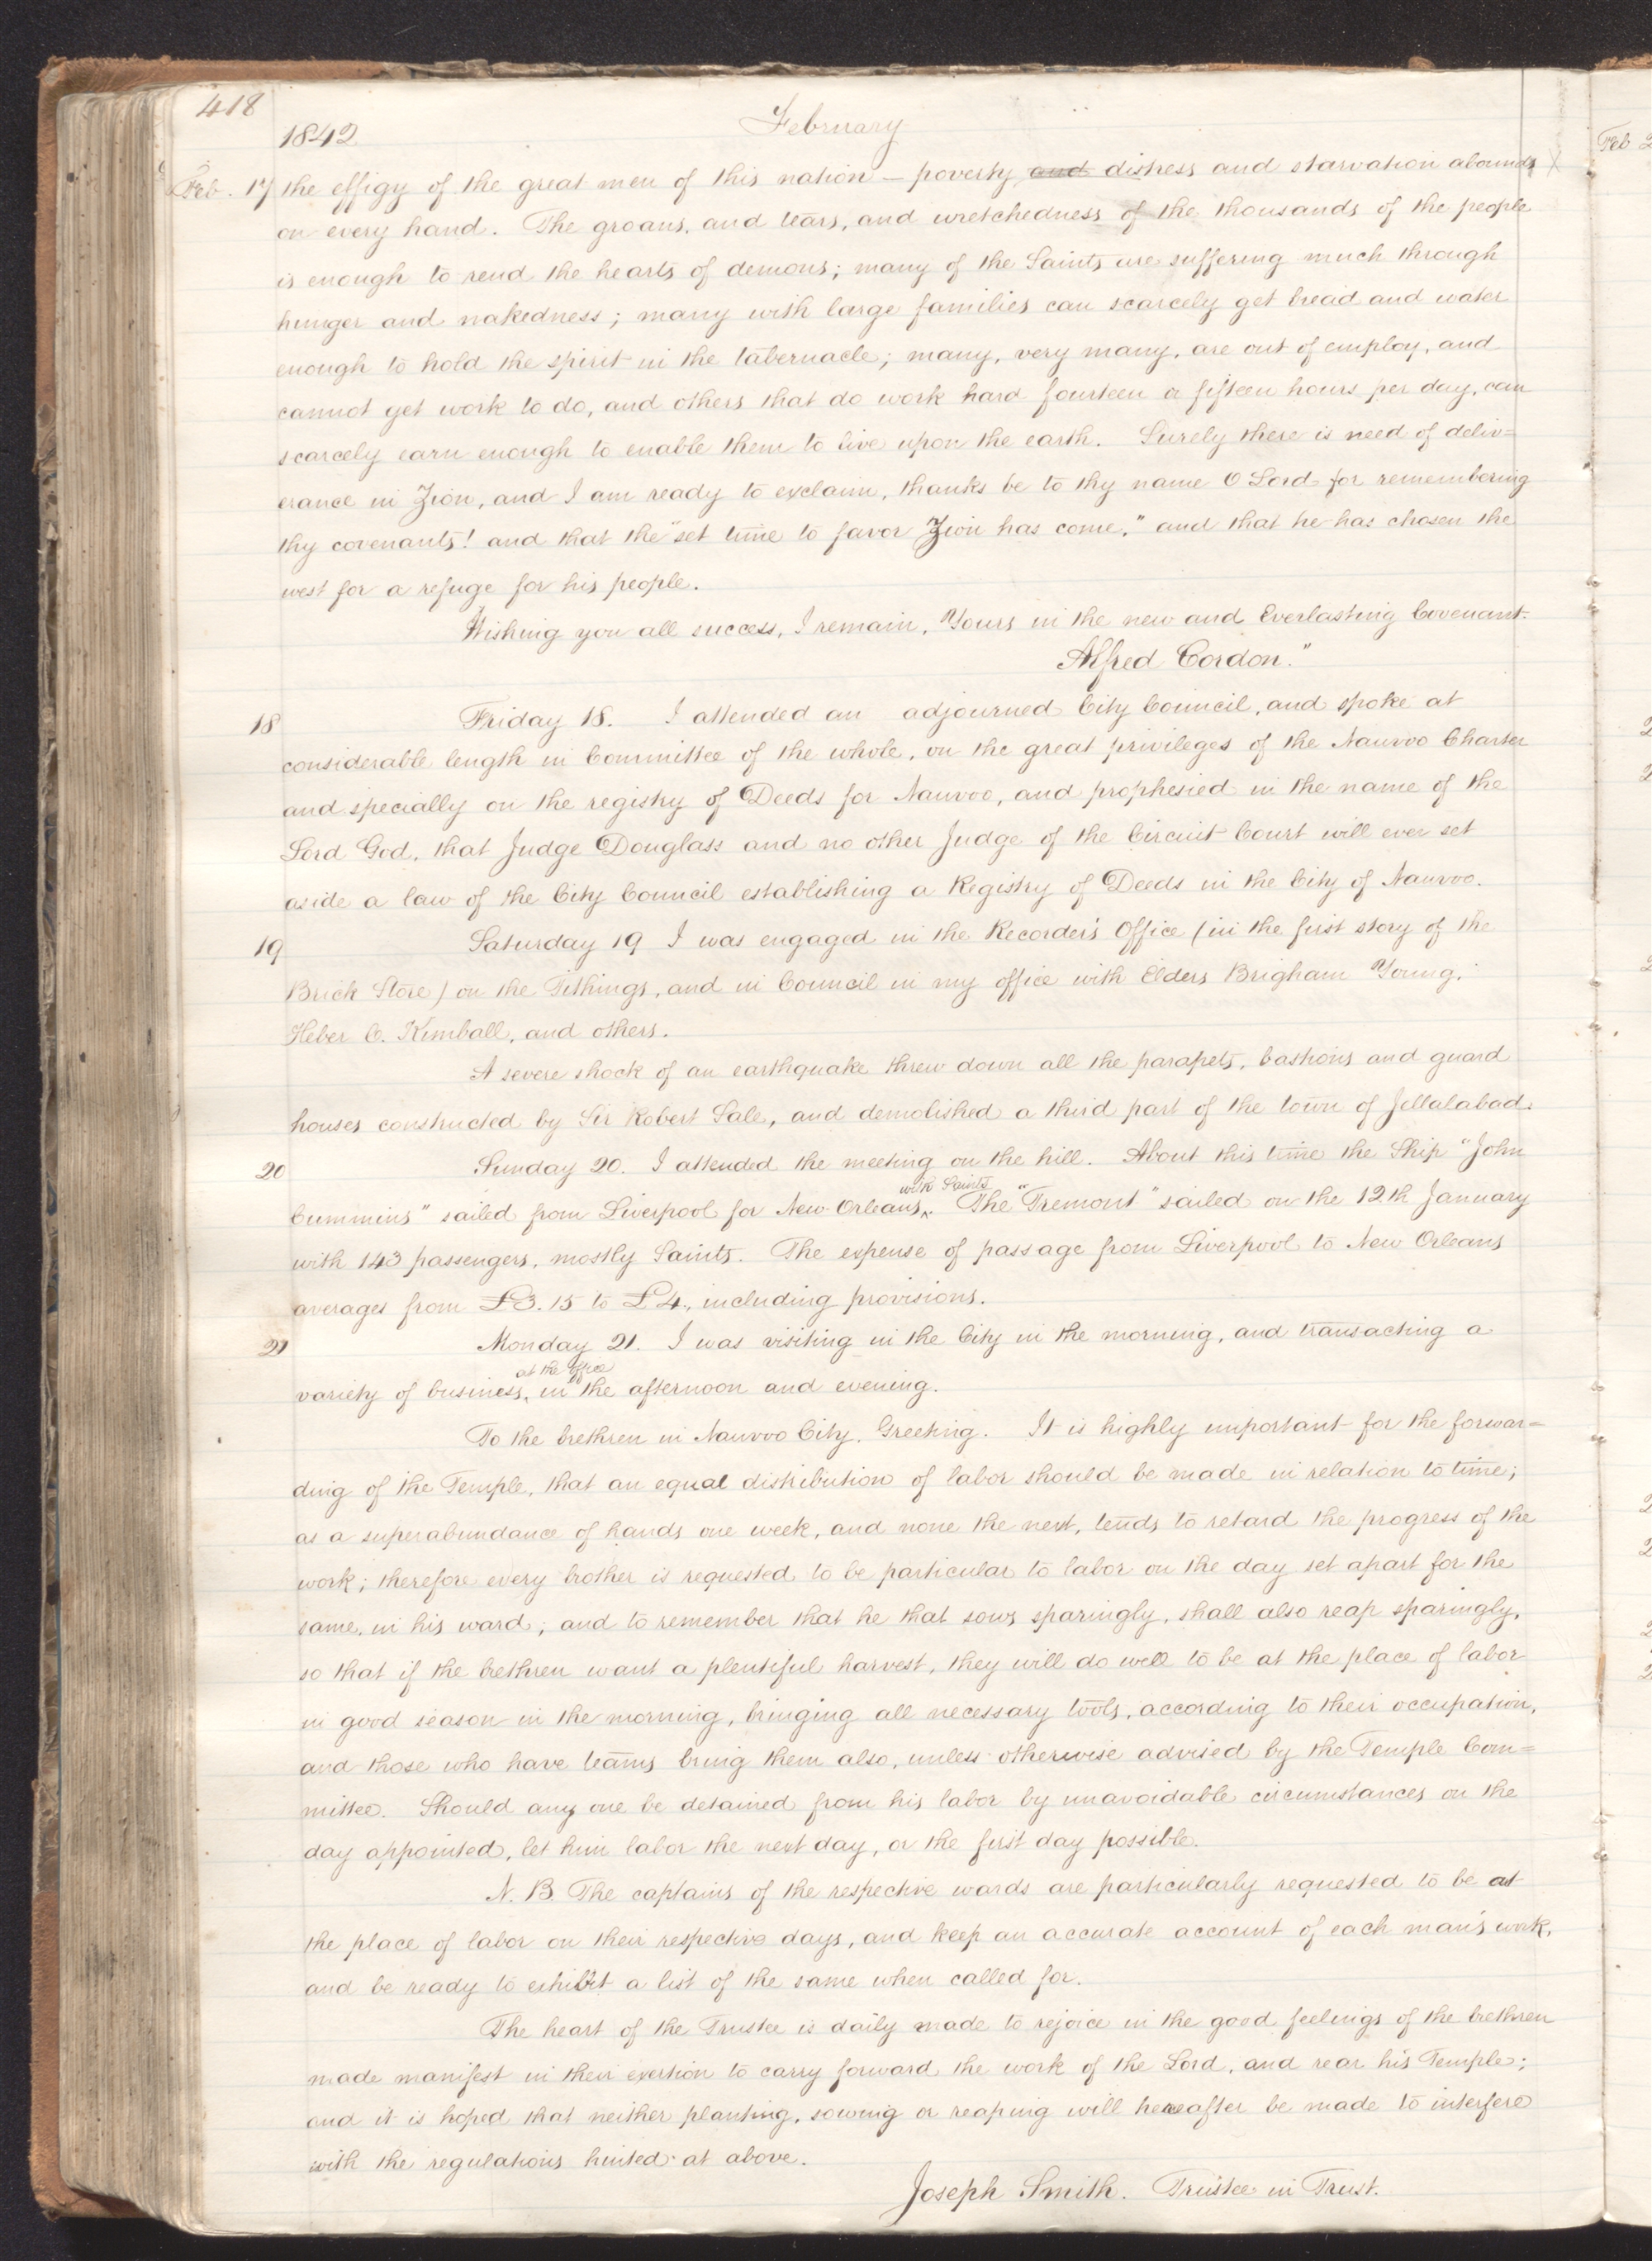 418
1842
February
Feb. 17 the effigy of the great men of this nation — poverty and distress and starvation abounds
on every hand. The groans, and tears, and wretchedness of the thousands of the people
is enough to rend the hearts of demons; many of the Saints are suffering much through
hunger and nakedness; many with large families can scarcely get bread and water
enough to hold the spirit in the tabernacle; many, very many, are out of employ, and
cannot get work to do, and others that do work hard fourteen or fifteen hours per day, can
scarcely earn enough to enable them to live upon the earth. Surely there is need of deliv=
erance in Zion, and I am ready to exclaim, thanks be to thy name O Lord for remembering
thy covenants! and that the "set time to favor Zion has come," and that he has chosen the
west for a refuge for his people.
Wishing you all success, I remain, Yours in the new and Everlasting Covenant.
Alfred Cordon."
18 Friday 18. I attended an adjourned City Council, and spoke at
considerable length in Committee of the whole, on the great privileges of the Nauvoo Charter
and specially on the registry of Deeds for Nauvoo, and prophesied in the name of the
Lord God, that Judge Douglass and no other Judge of the Circuit Court will ever set
aside a law of the City Council establishing a Registry of Deeds in the City of Nauvoo.
19 Saturday 19 I was engaged in the Recorder's Office (in the first story of the
Brick Store) on the Tithings, and in Council in my office with Elders Brigham Young,
Heber C. Kimball, and others.
A severe shock of an earthquake threw down all the parapets, bastions and guard
houses constructed by Sir Robert Sale, and demolished a third part of the town of Jellalabad.
20 Sunday 20. I attended the meeting on the hill. About this time the Ship "John
Cummins" sailed from Liverpool for New Orleans with Saints. The "Tremont" sailed on the 12th January
with 143 passengers, mostly Saints. The expense of passage from Liverpool to New Orleans
averages from £3.15 to £4., including provisions.
21 Monday 21. I was visiting in the City in the morning, and transacting a
variety of business, at the office in the afternoon and evening.
To the brethren in Nauvoo City, Greeting. It is highly important for the forwar=
ding of the Temple, that an equal distribution of labor should be made in relation to time;
as a superabundance of hands one week, and none the next, tends to retard the progress of the
work; therefore every brother is requested to be particular to labor on the day set apart for the
same, in his ward; and to remember that he that sows sparingly, shall also reap sparingly,
so that if the brethren want a plentiful harvest, they will do well to be at the place of labor
in good season in the morning, bringing all necessary tools, according to their occupation,
and those who have teams bring them also, unless otherwise advised by the Temple Com=
mittee. Should any one be detained from his labor by unavoidable circumstances on the
day appointed, let him labor the next day, or the first day possible.
N.B. The captains of the respective wards are particularly requested to be at
the place of labor on their respective days, and keep an accurate account of each man's work,
and be ready to exhibit a list of the same when called for.
The heart of the Trustee is daily made to rejoice in the good feelings of the brethren
made manifest in their exertion to carry forward the work of the Lord, and rear his Temple;
and it is hoped that neither planting, sowing or reaping will hereafter be made to interfere
with the regulations hinted at above.
Joseph Smith. Trustee in Trust.
Feb 2